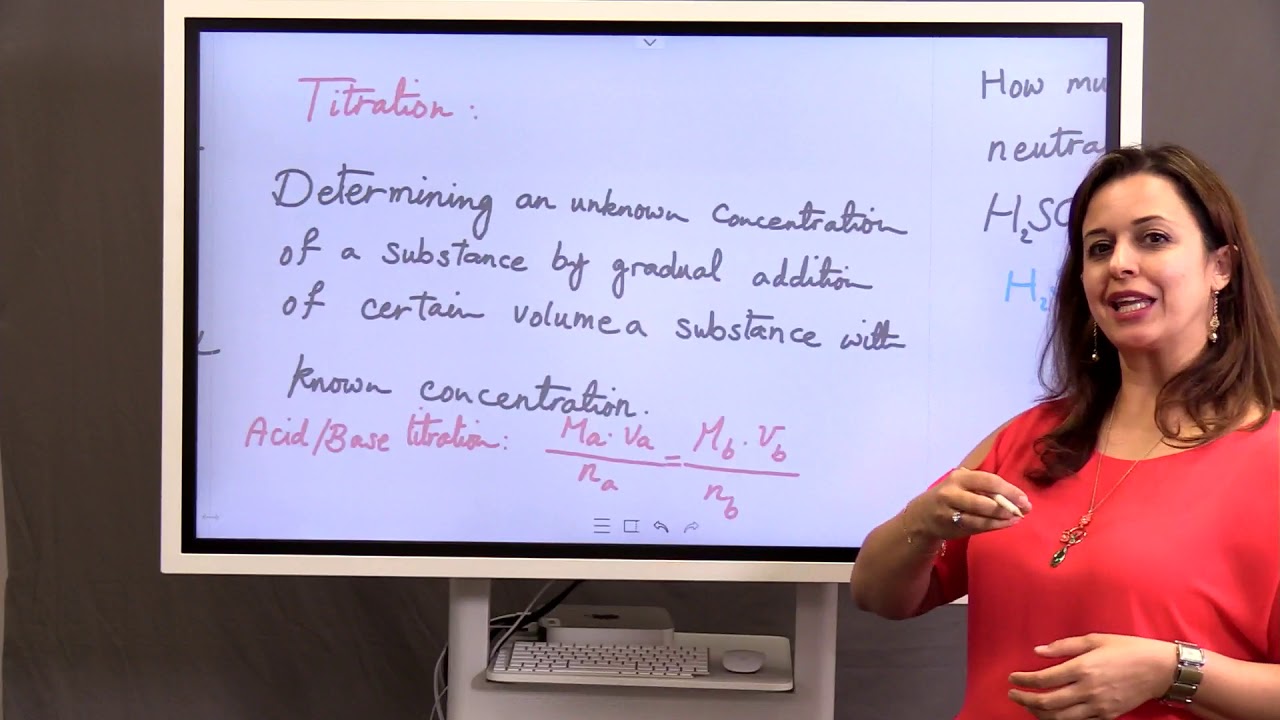 Titration:
Determining an unknown concentration
of a substance by gradual addition
of certain volume a substance with
known concentration.
Acid/Base titration: Ma·Va/na = Mb·Vb/nb
How mu
neutra
H₂SO
H₂